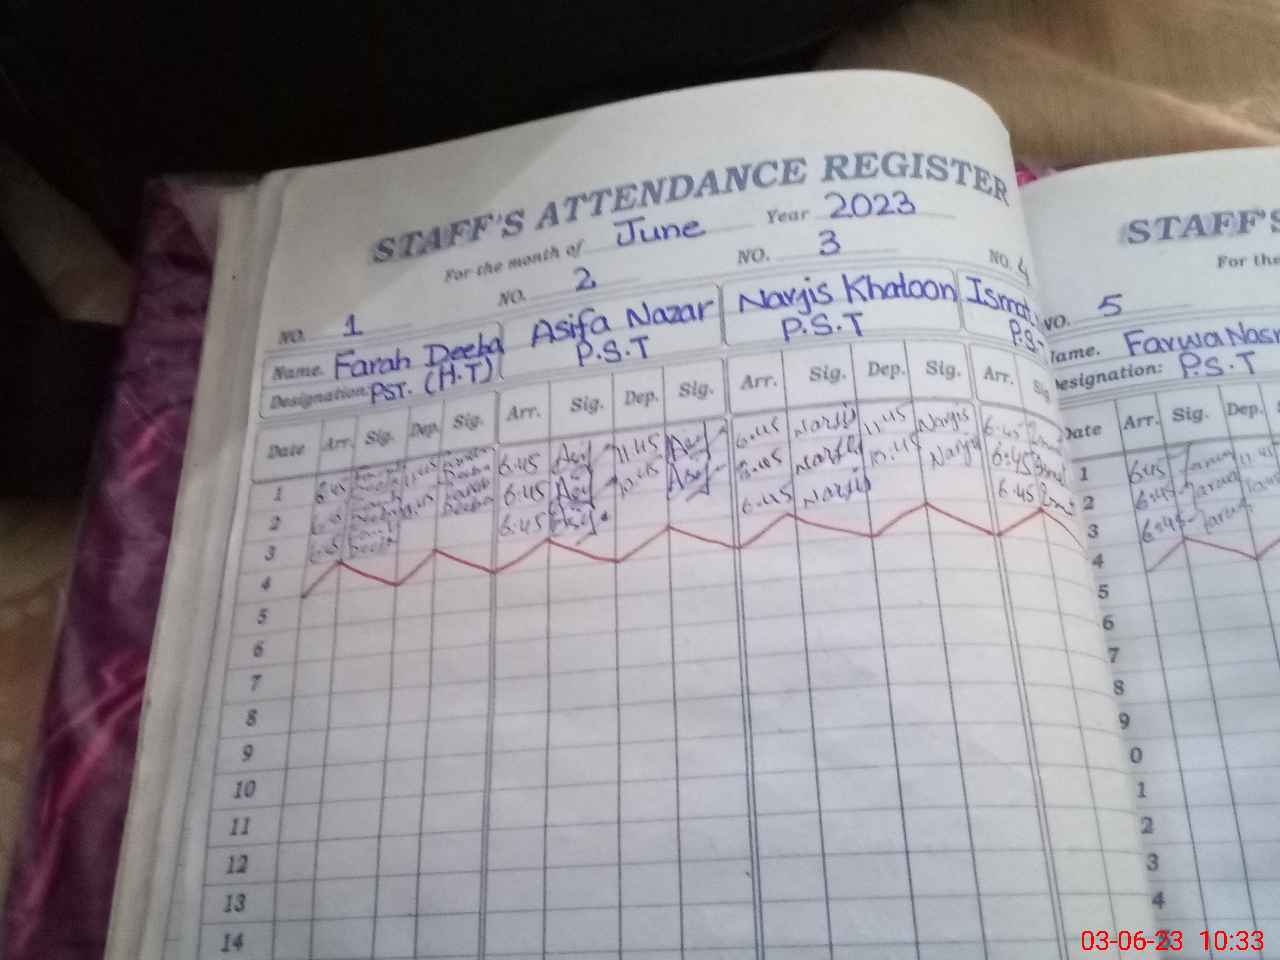 STAFF'S ATTENDANCE REGISTER
For the month of June Year 2023
NO. 1 NO. 2 NO. 3 NO. 4
Name. Farah Deeba Asifa Nazar Narjis Khatoon Ismat
Designation: PST. (H.T) P.S.T P.S.T P.S-
Date Arr. Sig. Dep. Sig. Arr. Sig. Dep. Sig. Arr. Sig. Dep. Sig. Arr. Sig
1 6:45 11:45 6:45 Asif 11:45 Asif 6:45 Narjis 11:45 Narjis 6:45
2 6:45 Asif 10:45 Asif 6:45 Narjis 10:45 Narjis 6:45
3 6:45 6:45 Asif 6:45 Narjis 6:45
4
5
6
7
8
9
10
11
12
13
14
STAFF'S
For the
NO. 5
Name. Farwa Nasr
Designation: P.S.T
Date Arr. Sig. Dep.
1 6:45 Farwa 11:45
2 6:45 Farwa
3 6:45 Farwa
4
5
6
7
8
9
0
1
2
3
4
03-06-23 10:33